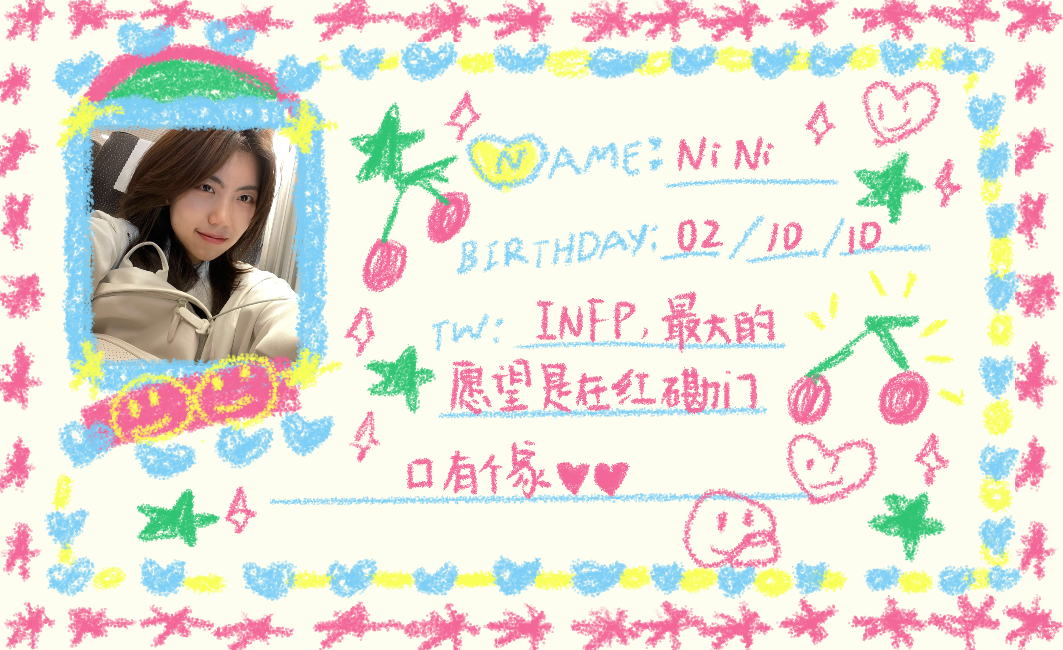 NAME: NiNi
BIRTHDAY: 02/10/10
TW: INFP, 最大的
愿望是在红磡门
口有个家♥♥